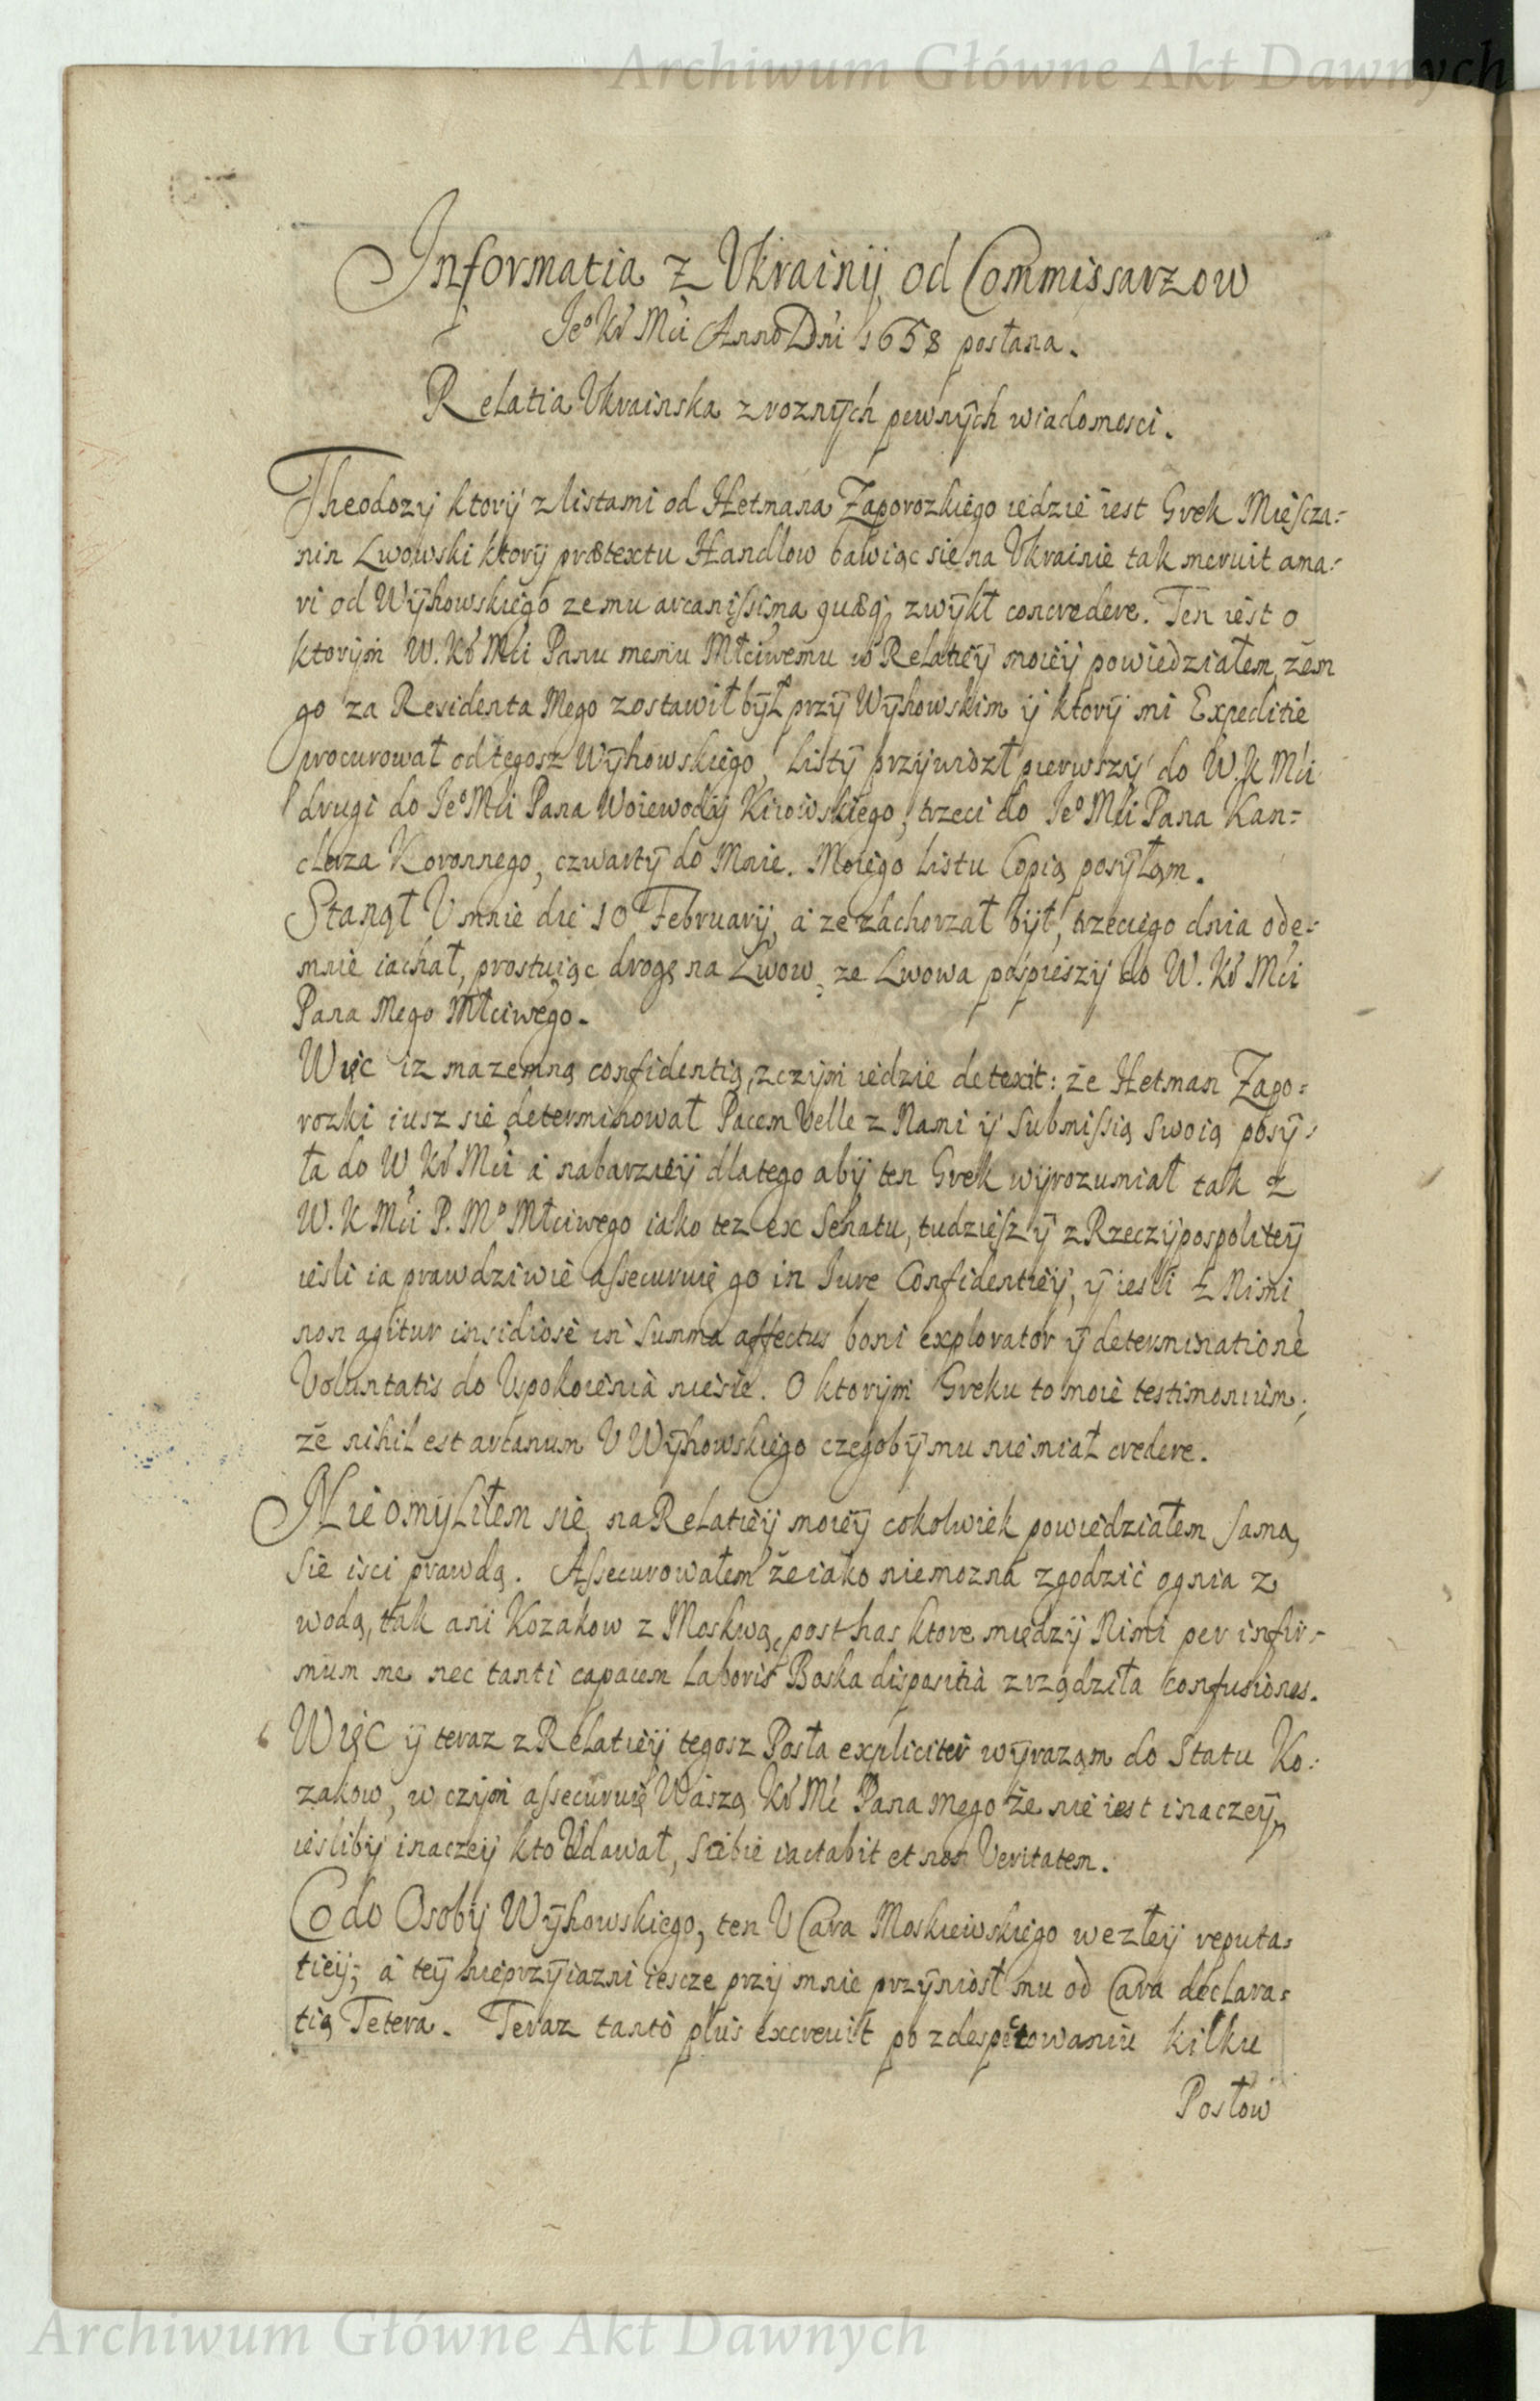 Archiwum Główne Akt Dawnych
Informatia z Ukrainij od Commissarzow
Je⁰ Kr Mci Anno Dni 1658 posłana.
Relatia Ukrainska z roznÿch pewnÿch wiadomosci.
Theodozy ktorij z listami od Hetmana Zaporozkiego iedzie iest Grek Miesscza=
nin Lwowski ktorÿ prætextu Handlow bawiąc się na Ukrainie tak meruit ama=
ri od Wÿhowskiego ze mu arcanissima quæq zwÿkł concredere. Ten iest o
ktorÿm W. Kr Mci Panu memu Młciwemu w Relatiēÿ moiēÿ powiedziałem, żem
go za Residenta Mego zostawił bÿł przÿ Wÿhowskim ÿ ktorÿ mi Expeditie
procurował od tegosz Wÿhowskiego, Listÿ przÿwiozł pierwszÿ do W. K Mci
drugi do Je⁰ Mci Pana Woiewodÿ Kiiowskiego, trzeci do Je⁰ Mci Pana Kan=
clerza Koronnego, czwartÿ do Mnie. Moiego listu Copią posÿłąm.
Stanął U mnie die 10 Februarij, a ze zachorzał bÿł, trzeciego dnia ode=
mnie iachał, prostuiąc drogę na Lwow, ze Lwowa pospieszÿ do W. Kr Mci
Pana Mego Młciwego.
Więc iz ma zemną confidentią, z czÿm iedzie detexit: że Hetman Zapo=
rozki iusz się determinował Pacem Velle z Nami ÿ Submissią Swoią posÿ=
ła do W. Kr Mci a nabarzieÿ dlatego abÿ ten Grek wÿrozumiał tak z
W. K Mci P. M⁰ Młciwego iako tez ex Senatu, tudzieszÿ z Rzeczÿpospolitēÿ
iesli ia prawdziwie assecuruię go in Jure Confidentiēÿ, ÿ iesli z Nimi
non agitur insidiose in Summa affectus boni explorator ÿ determinationē
Voluntatis do Uspokoienia niesie. O ktorÿm Greku to moie testimonium;
że nihil est arcanum U Wÿhowskiego czegobÿ mu nie miał credere.
Nie omÿliłem się, na Relatiēÿ moiēÿ cokolwiek powiedziałem samą
się isci prawdą. Assecurowałem że iako niemozna zgodzić ognia z
wodą, tak ani Kozakow z Moskwą, post has ktore międzÿ Nimi per infir=
mum me nec tanti capacem laboris Boska dispositia zrządziła confusiones.
Więc ÿ teraz z Relatiēÿ tegosz Posła expliciter wÿrazam do Statu Ko:
zakow, w czÿm assecuruię Waszą Kr Mc Pana mego że nie iest inaczeÿ,
ieslibÿ inaczeÿ kto Udawał, Sibie iactabit et non Veritatem.
Co do Osobÿ Wÿhowskiego, ten U Cara Moskiewskiego w ezłeÿ reputa=
tieÿ; a teÿ nieprzÿiazni iescze przÿ mnie przÿniosł mu od Cara declara=
tią Tetera. Teraz tanto plus excreuit po zdespectowaniu kilku
Posłow
Archiwum Główne Akt Dawnych